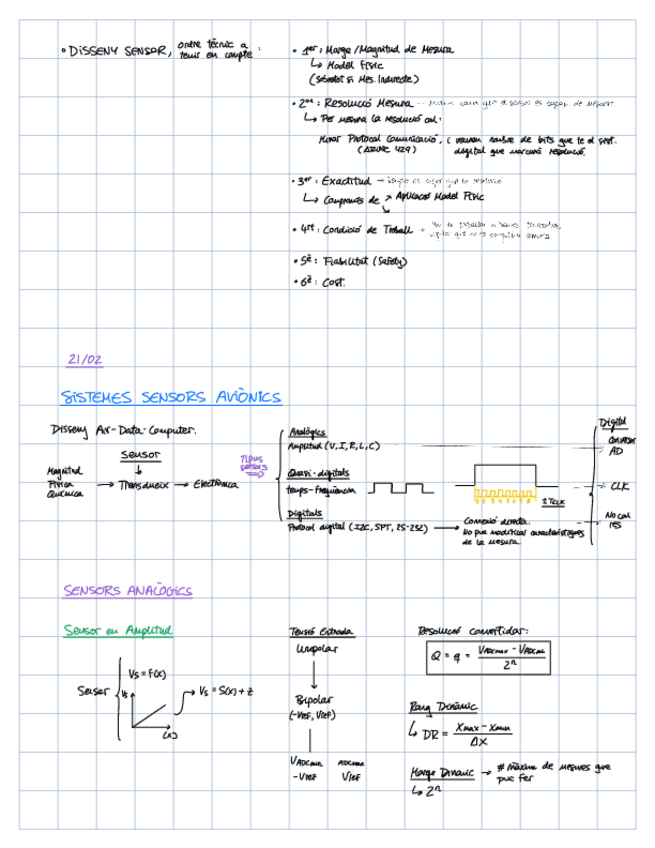 • DISSENY SENSOR, ordre tècnic a tenir en compte :
• 1er: Marge/Magnitud de Mesura
↳ Model Físic
(Sobretot si Mes. Indirecte)
• 2on: Resolució Mesura
↳ Per mesura la resolució
Mirar Protocol Comunicació, ( nombre de bits que te el sist.
(ARINC 429) digital que marcarà resolució.
• 3er: Exactitud →
↳ Comprants de → Aplicació Model Físic
• 4rt: Condició de Treball →
• 5è: Fiabilitat (Safety)
• 6è: Cost.
21/02
SISTEMES SENSORS AVIÒNICS
Disseny Air-Data-Computer.
Sensor
Magnitud
Física
Química → Transdueix → Electrònica
TIPUS
sensors
Analògics
Amplitud (V, I, R, L, C)
Quasi-digitals
temps-freqüència
Digitals
Protocol digital (I2C, SPI, RS-232) → Connexió directa.
No puc modificar característiques
de la mesura.
1 TCLK
Digital
Conversor
AD
CLK
No cal
res
SENSORS ANALÒGICS
Sensor en Amplitud
Sensor
Vs = f(x)
Vs
(x)
Vs = S(x) + z
Tensió Entrada
Unipolar
Bipolar
(-Vref, Vref)
VADCmin VADCmax
-Vref Vref
Resolució convertidor:
Q = q = (VADCmax - VADCmin) / 2^n
Rang Dinàmic
↳ DR = (Xmax - Xmin) / ΔX
Marge Dinamic → # màxim de mesures que
puc fer
↳ 2^n